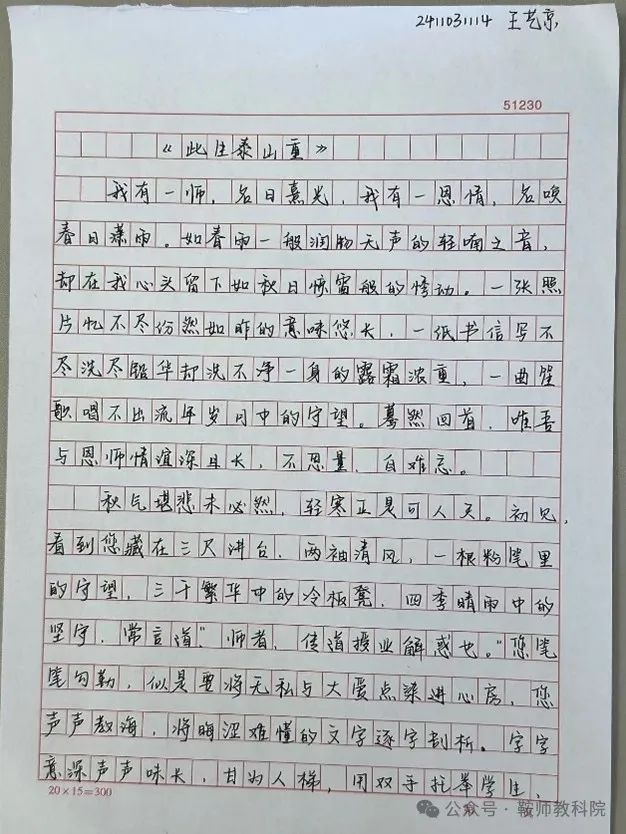 2411031114 王艺京
51230
《此生泰山重》
我有一师，名曰熹光，我有一恩情，名唤
春日潇雨。如春雨一般润物无声的轻喃之音，
却在我心头留下如秋日惊雷般的悸动。一张照
片忆不尽份然如昨的意味悠长，一纸书信写不
尽洗尽铅华却洗不净一身的露霜浓重，一曲笙
歌唱不出流年岁月中的守望。蓦然回首，唯吾
与恩师情谊深且长，不思量，自难忘。
秋气堪悲未必然，轻寒正是可人天。初见，
看到您藏在三尺讲台，两袖清风，一根粉笔里
的守望，三千繁华中的冷板凳，四季晴雨中的
坚守，常言道："师者，传道授业解惑也。"您笔
笔勾勒，似是要将无私与大爱点染进心房，您
声声教海，将晦涩难懂的文字逐字剖析。字字
意深声声味长，甘为人梯，用双手托举学生，
20×15=300
公众号·鞍师教科院